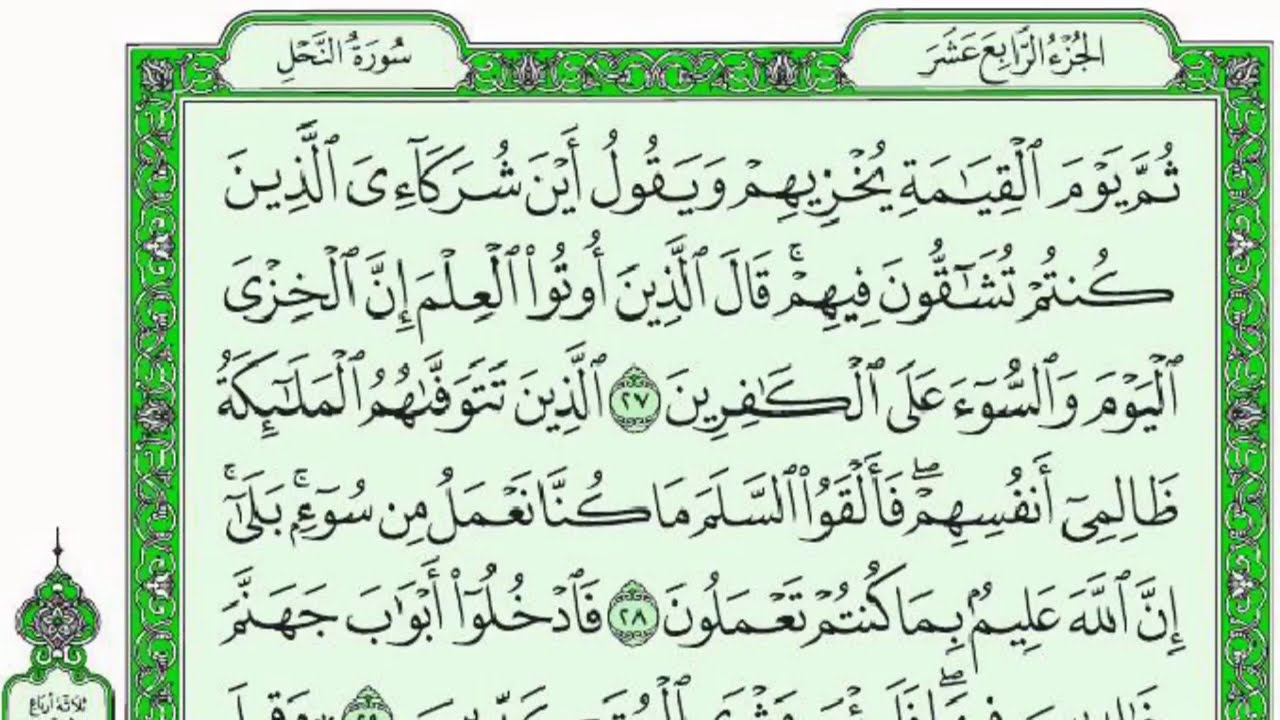 الجُزْءُ الرَّابِعَ عَشَرَ
سُورَةُ النَّحْلِ
ثُمَّ يَوْمَ ٱلْقِيَٰمَةِ يُخْزِيهِمْ وَيَقُولُ أَيْنَ شُرَكَآءِىَ ٱلَّذِينَ
كُنتُمْ تُشَٰٓقُّونَ فِيهِمْۚ قَالَ ٱلَّذِينَ أُوتُوا۟ ٱلْعِلْمَ إِنَّ ٱلْخِزْىَ
ٱلْيَوْمَ وَٱلسُّوٓءَ عَلَى ٱلْكَٰفِرِينَ ٢٧ ٱلَّذِينَ تَتَوَفَّىٰهُمُ ٱلْمَلَٰٓئِكَةُ
ظَالِمِىٓ أَنفُسِهِمْۖ فَأَلْقَوُا۟ ٱلسَّلَمَ مَا كُنَّا نَعْمَلُ مِن سُوٓءٍۭۚ بَلَىٰٓۚ
إِنَّ ٱللَّهَ عَلِيمٌۢ بِمَا كُنتُمْ تَعْمَلُونَ ٢٨ فَٱدْخُلُوٓا۟ أَبْوَٰبَ جَهَنَّمَ
ثلاثة أرباع